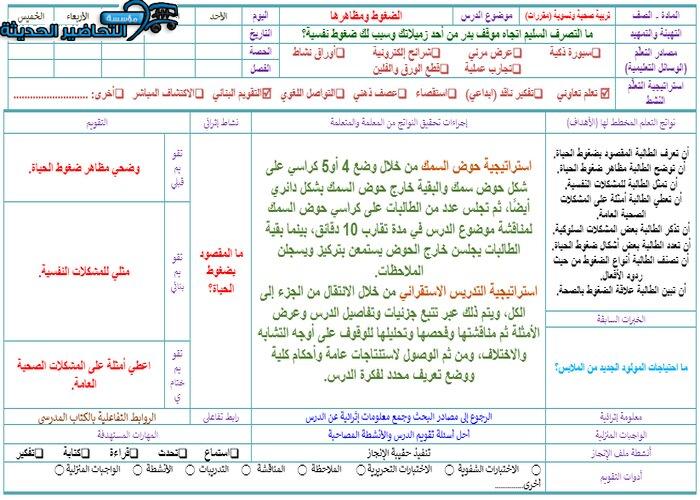 المادة ـ الصف
تربية صحية ونسوية (مقررات)
موضوع الدرس
الضغوط ومظاهرها
اليوم
الأحد
الأربعاء
الخميس
مؤسسة
التحاضير الحديثة
التهيئة والتمهيد
ما التصرف السليم اتجاه موقف بدر من أحد زميلاتك وسبب لك ضغوط نفسية؟
التاريخ
مصادر التعلم
(الوسائل التعليمية)
سبورة ذكية
عرض مرئي
شرائح إلكترونية
أوراق نشاط
الحصة
تجارب عملية
قطع الورق والفلين
الفصل
استراتيجية التعلم
النشط
تعلم تعاوني
تفكير ناقد (ابداعي)
استقصاء
عصف ذهني
التواصل اللغوي
التقويم البنائي
الاكتشاف المباشر
أخرى: ..........................
نواتج التعلم المخطط لها (الأهداف)
إجراءات تحقيق النواتج من المعلمة والمتعلمة
نشاط إثرائي
التقويم
أن تعرف الطالبة المقصود بضغوط الحياة.
أن توضح الطالبة مظاهر ضغوط الحياة.
أن تمثل الطالبة للمشكلات النفسية.
أن تعطي الطالبة أمثلة على المشكلات
الصحية العامة.
أن تذكر الطالبة بعض المشكلات السلوكية.
أن تعدد الطالبة بعض أشكال ضغوط الحياة.
أن تصنف الطالبة أنواع الضغوط من حيث
ردود الأفعال.
أن تبين الطالبة علاقة الضغوط بالصحة.
الخبرات السابقة
ما احتياجات المولود الجديد من الملابس؟
استراتيجية حوض السمك من خلال وضع 4 أو5 كراسي على
شكل حوض سمك والبقية خارج حوض السمك بشكل دائري
أيضًا، ثم تجلس عدد من الطالبات على كراسي حوض السمك
لمناقشة موضوع الدرس في مدة تقارب 10 دقائق، بينما بقية
الطالبات يجلسن خارج الحوض يستمعن بتركيز ويسجلن
الملاحظات.
استراتيجية التدريس الاستقرائي من خلال الانتقال من الجزء إلى
الكل، ويتم ذلك عبر تتبع جزئيات وتفاصيل الدرس وعرض
الأمثلة ثم مناقشتها وفحصها وتحليلها للوقوف على أوجه التشابه
والاختلاف، ومن ثم الوصول لاستنتاجات عامة وأحكام كلية
ووضع تعريف محدد لفكرة الدرس.
ما المقصود
بضغوط
الحياة؟
تقو
يم
قبلي
وضحي مظاهر ضغوط الحياة.
تقو
يم
بنائي
مثلي للمشكلات النفسية.
تقو
يم
ختام
ي
اعطي أمثلة على المشكلات الصحية
العامة.
معلومة إثرائية
الرجوع إلى مصادر البحث وجمع معلومات إثرائية عن الدرس
رابط تفاعلي
الروابط التفاعلية بالكتاب المدرسي
الواجبات المنزلية
أحل أسئلة تقويم الدرس والأنشطة المصاحبة
المهارات المستهدفة
أنشطة ملف الإنجاز
تنفيذ حقيبة الإنجاز
استماع
تحدث
قراءة
كتابة
تفكير
أدوات التقويم
الاختبارات الشفوية
الاختبارات التحريرية
الملاحظة
المناقشة
التدريبات
الأنشطة
الواجبات المنزلية
أخرى................